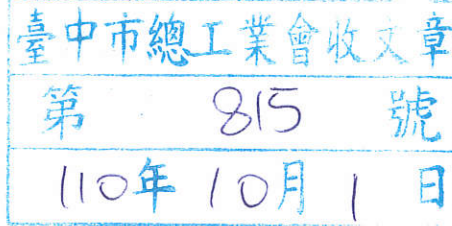 臺中市總工業會收文章
第 815 號
110年 10月 1 日